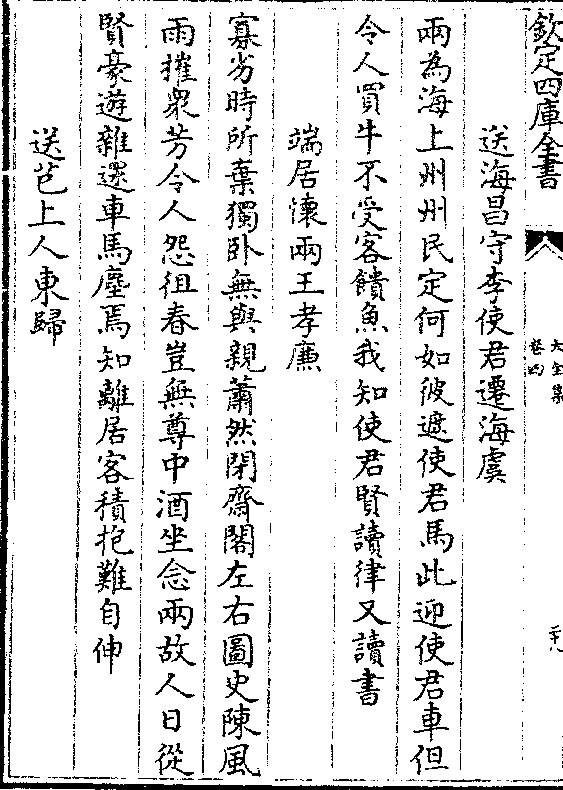 欽定四庫全書
大全集
卷四
二十八
送海昌守李使君遷海虞
兩為海上州州民定何如彼遮使君馬此迎使君車但
令人買牛不受客饋魚我知使君賢讀律又讀書
端居懷兩王孝廉
寡劣時所棄獨卧無與親蕭然閉齋閤左右圖史陳風
雨摧衆芳令人怨徂春豈無尊中酒坐念兩故人日從
賢豪遊雜遝車馬塵焉知離居客積抱難自伸
送芑上人東歸